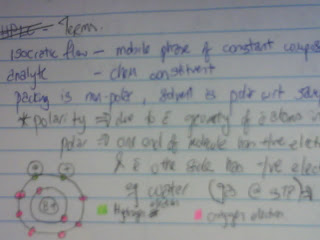 HPLC - Terms.
isocratic flow - mobile phase of constant compos
analyte - chem constituent
packing is non-polar, solvent is polar wrt sam
* polarity ⇒ due to geometry of atoms in
polar ⇒ one end of molecule has +ive elect
& the other side has -ive elec
eg water
Hydrogen electron
oxygen electron